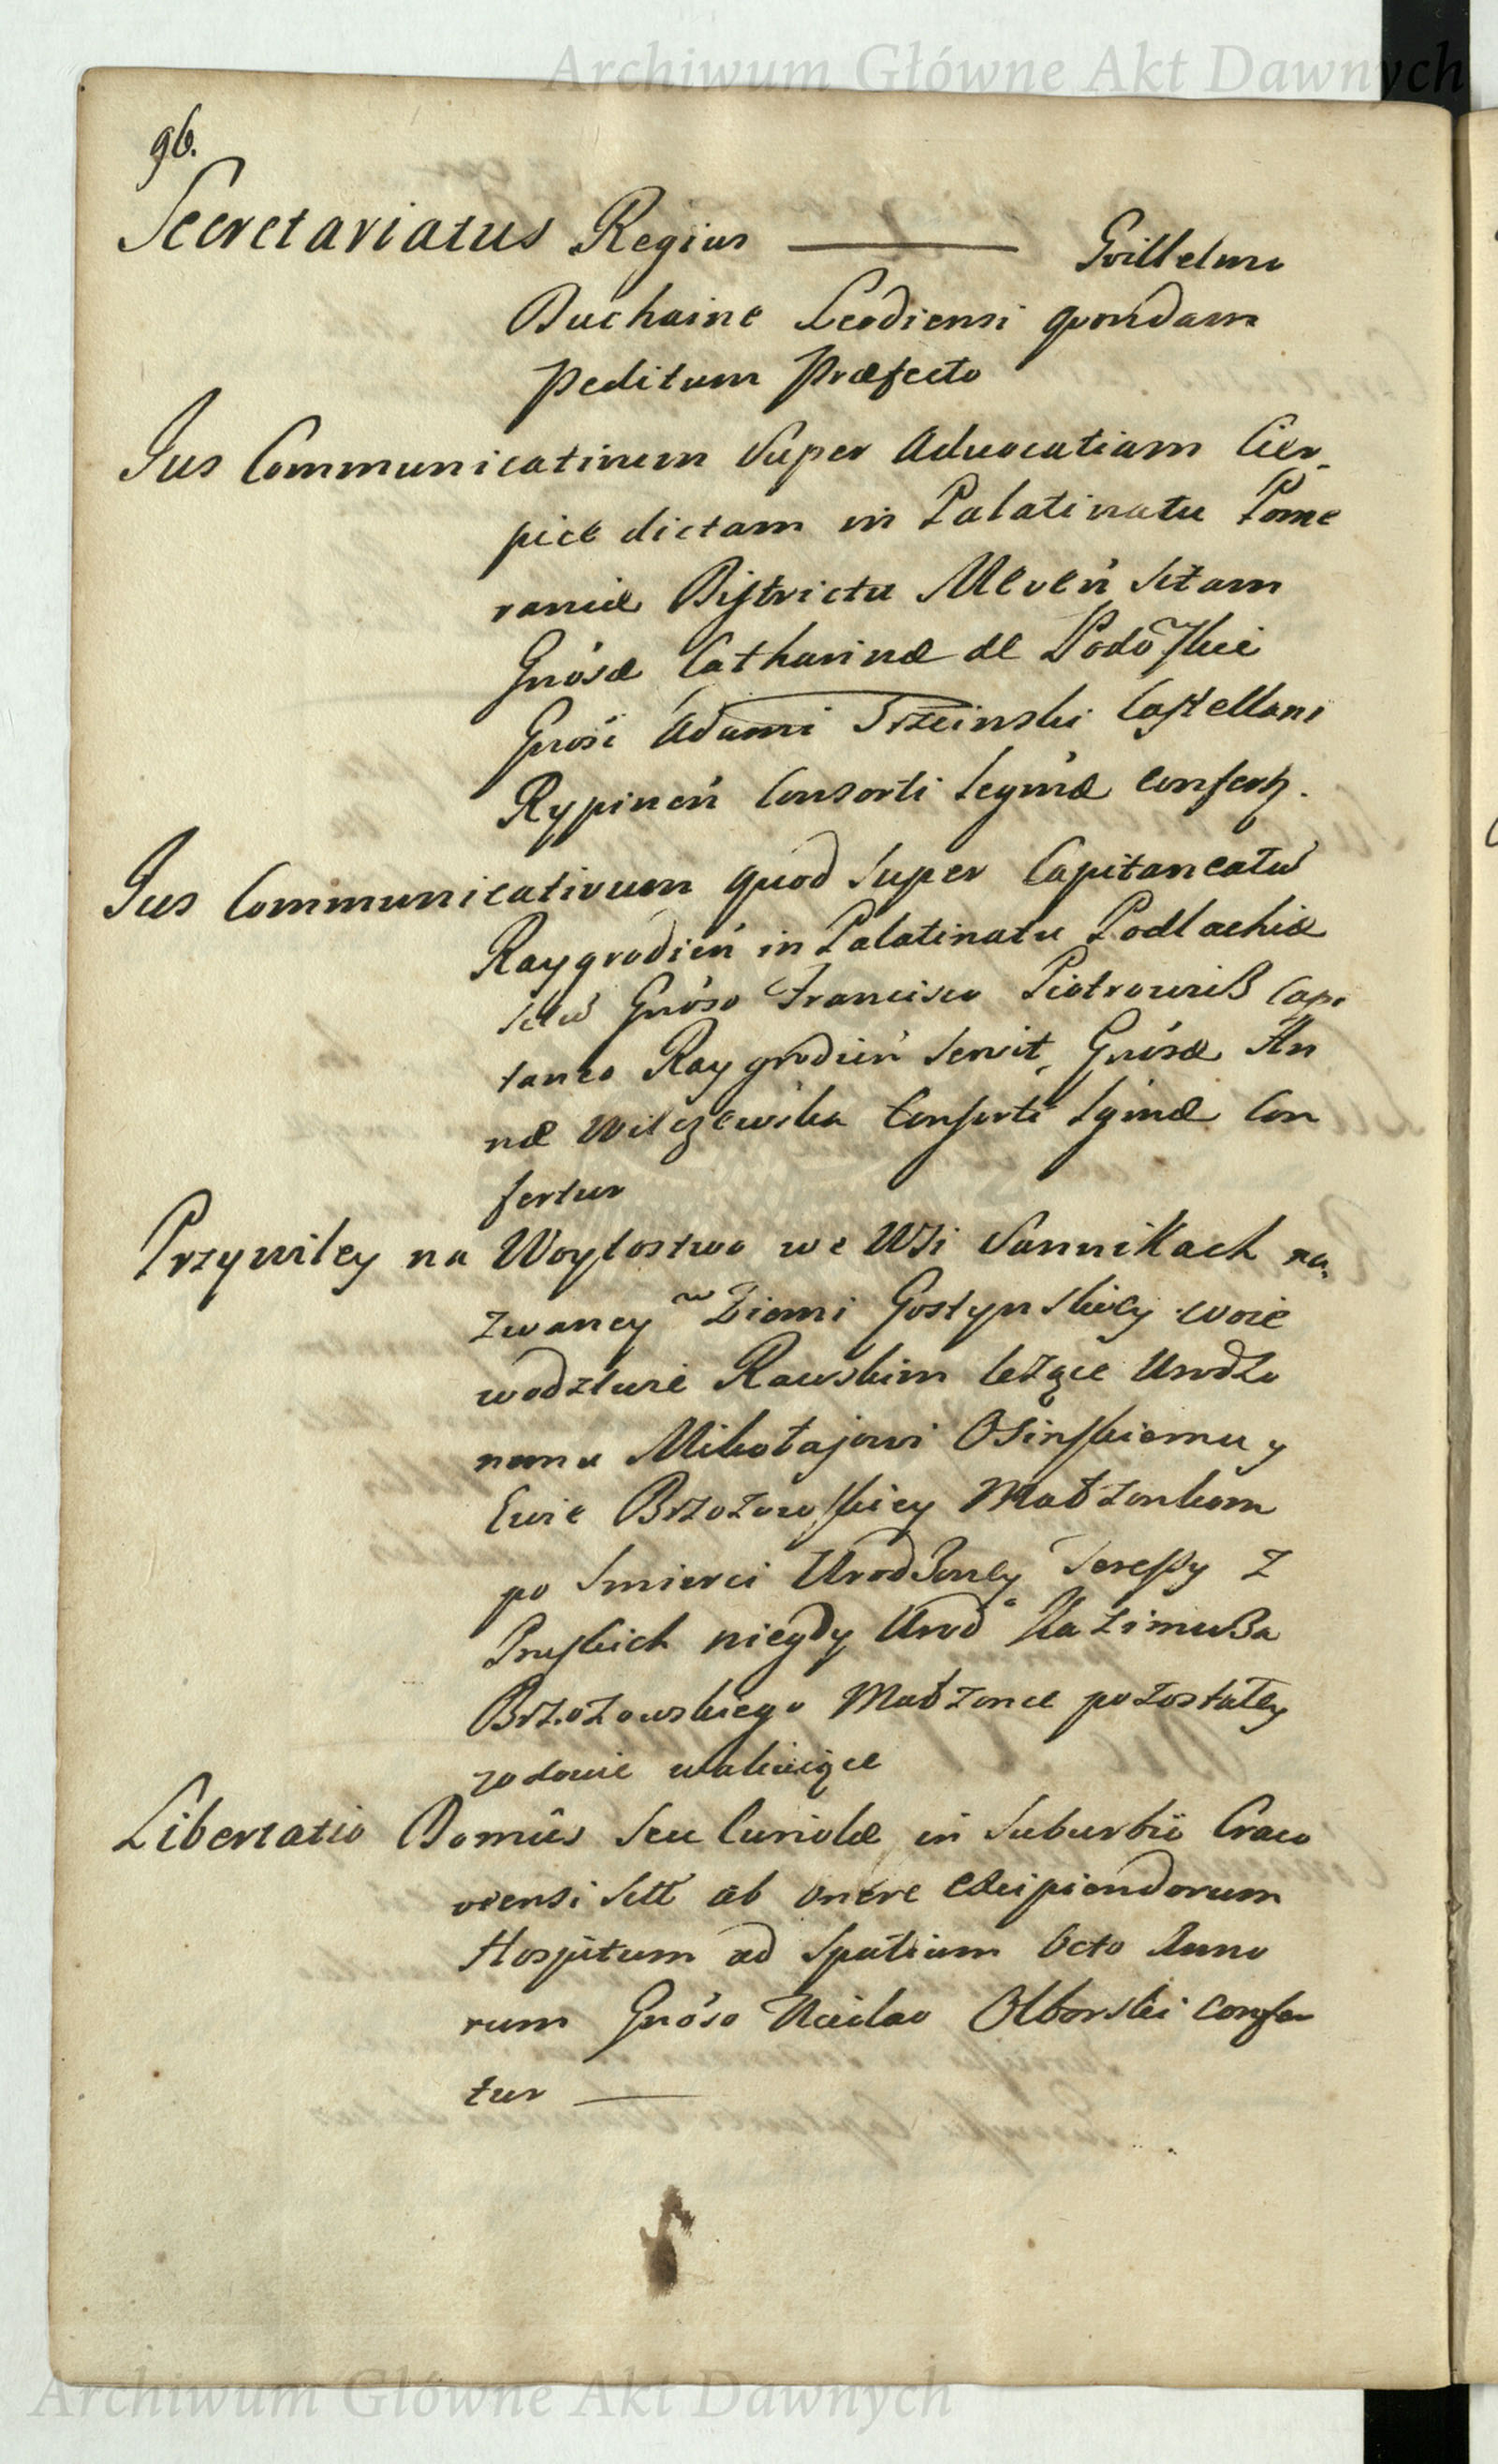 Archiwum Główne Akt Dawnych
96.
Secretariatus Regius ——— Guillelmo
Duchaine Leodiensi quondam
peditum Præfecto
Jus Communicativum Super Advocatiam Cier-
pice dictam in Palatinatu Pome
raniæ Districtu Meveń Sitam
Gnósæ Catharinæ de Podoskie
Gnósi Adami Trzcinski Castellani
Rypineń Consorti Legmæ confert.
Jus Communicativum quod Super Capitaneatu
Raygrodień in Palatinatu Podlachiæ
Gnóso Francisco Piotrowiß Capi
taneo Raygrodień servit, Gnósæ An
næ Wilczewska Consorti Lgimæ Con
fertur
Przywiley na Woytostwo we Wsi Sannikach na,
zwaney w Ziemi Gostynskiey woie
wodztwie Rawskim leżące Urodzo
nemu Mikołajowi Osinskiemu y
Ewie Brzozowskiey Małżonkom
po Smierci Urodzoney Teressy z
Pruskich niegdy Urod Kazimußa
Brzozowskiego Małżonce pozostałey
wdowie wakuiące
Libertatio Domûs Seu Curiolæ in Suburbio Craco
viensi Sitt ab onere excipiendorum
Hospitum ad Spatium Octo Anno
rum Gnóso Olborski confer
tur —
Archiwum Główne Akt Dawnych